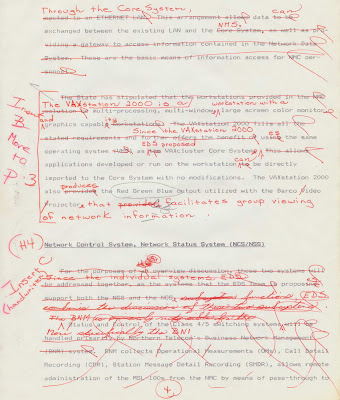 Through the Core System, can
nected to an ETHERNET LAN. This arrangement allows data to be
NMS.
exchanged between the existing LAN and the Core System, as well as pro-
viding a gateway to access information contained in the Network Data
System. These are the basic means of information access for NMC per-
sonnel.
The State has stipulated that the workstations provided in the
The VAXstation 2000 is a workstation with a
solution be multiprocessing, multi-windowing large screen color monitor
graphics capable workstations. The VAXstation 2000 fills all
Since the VAXstation 2000
stated requirements and further offers the benefit of using the same
EDS proposed
operating system as VAXcluster Core Systems. This allows
can
applications developed or run on the workstation to be directly
imported to the Core System with no modifications. The VAXstation 2000
produces
also provides the Red Green Blue output utilized with the Barco Video
Projector, that provides facilitates group viewing
of network information.
Insert
&
Move
to
p. 3
(H4)
Network Control System, Network Status System (NCS/NSS)
Insert
C
(handwritten)
For the purposes of an overview discussion, these two systems will
Since the individual systems EDS
be addressed together, as the systems that the EDS Team is proposing
support both the NSS and the NCS
Status and control of the Class 4/5 switching systems will be
More specifically the BNM
handled primarily by Northern Telecom's Business Network Management
(BNM) system. BNM collects Operational Measurements (OMs), Call Detail
Recording (CDR), Station Message Detail Recording (SMDR), allows remote
administration of the MSL-100s from the NMC by means of pass-through to
4